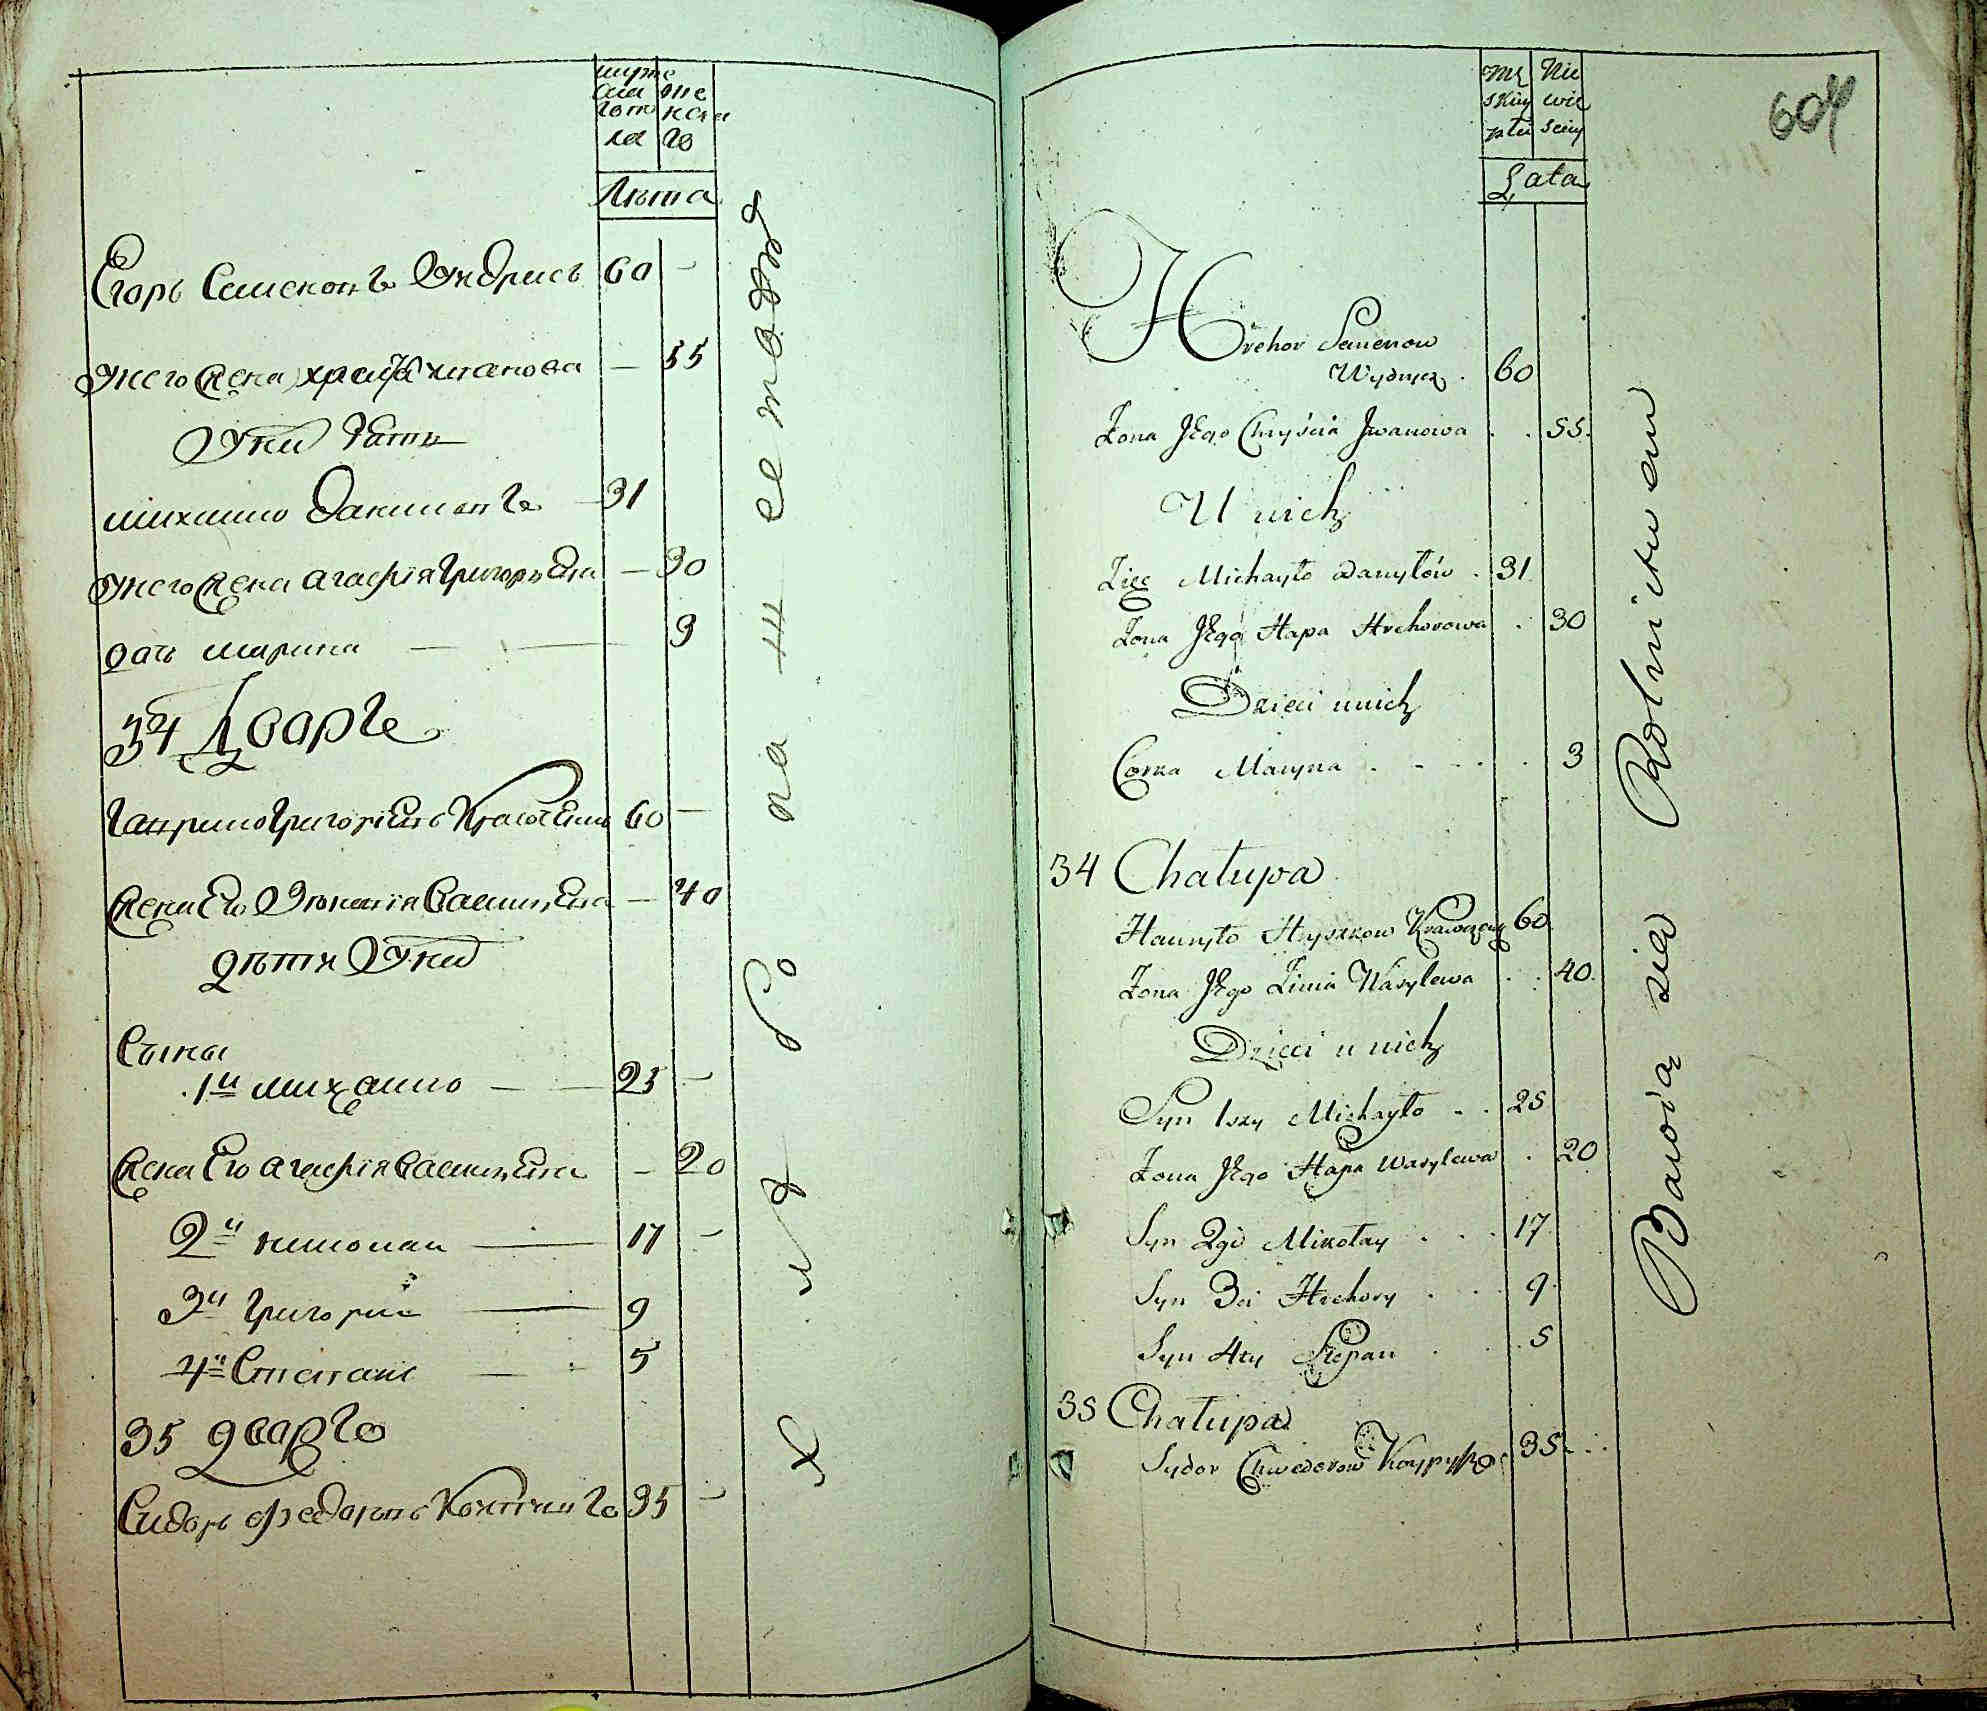 мужеска пола
женска го
Лѣта
Егоръ Семеновъ 60 —
У него жена Иванова — 55
У ни Зять
Михаило Даниловъ — 31
У него жена Агафія Григорьева — 30
дочь Марина — 3
34 Дворъ
Гаврило Григорьевъ 60 —
жена Его Васильева — 40
дѣти У ни
Сыны
1й Михаило — 25 —
жена Его Агафія Васильева — 20
2й Николай — 17 —
3й Григорий — 9
4й Степанъ — 5
35 дворъ
Сидоръ Федоровъ 35 —
Хлѣбо па ше ство
60
Mę skiey płci
Nie wie sciey
Lata
Hrehor Semenow
60
Żona Jego Chryścia Jwanowa . . 55.
U nich
Zięc Michayło Danyłów . 31.
Żona Jego Hapa Hrehorowa . 30
Dzieci u nich
Corka Maryna . . . . . 3
34 Chałupa
Hauryło Hryszkow Krawczen 60
Żona Jego Zinia Wasylewa . . 40.
Dzieci u nich
Syn 1szy Michayło . . 25
Żona Jego Hapa Wasylewa . 20
Syn 2gi Mikołay . . . 17
Syn 3ci Hrehory . . . 9.
Syn 4ty Stepan . . . 5
35 Chałupa
Sydor Chwedorow 35. . .
Bawią się Rolnictwem